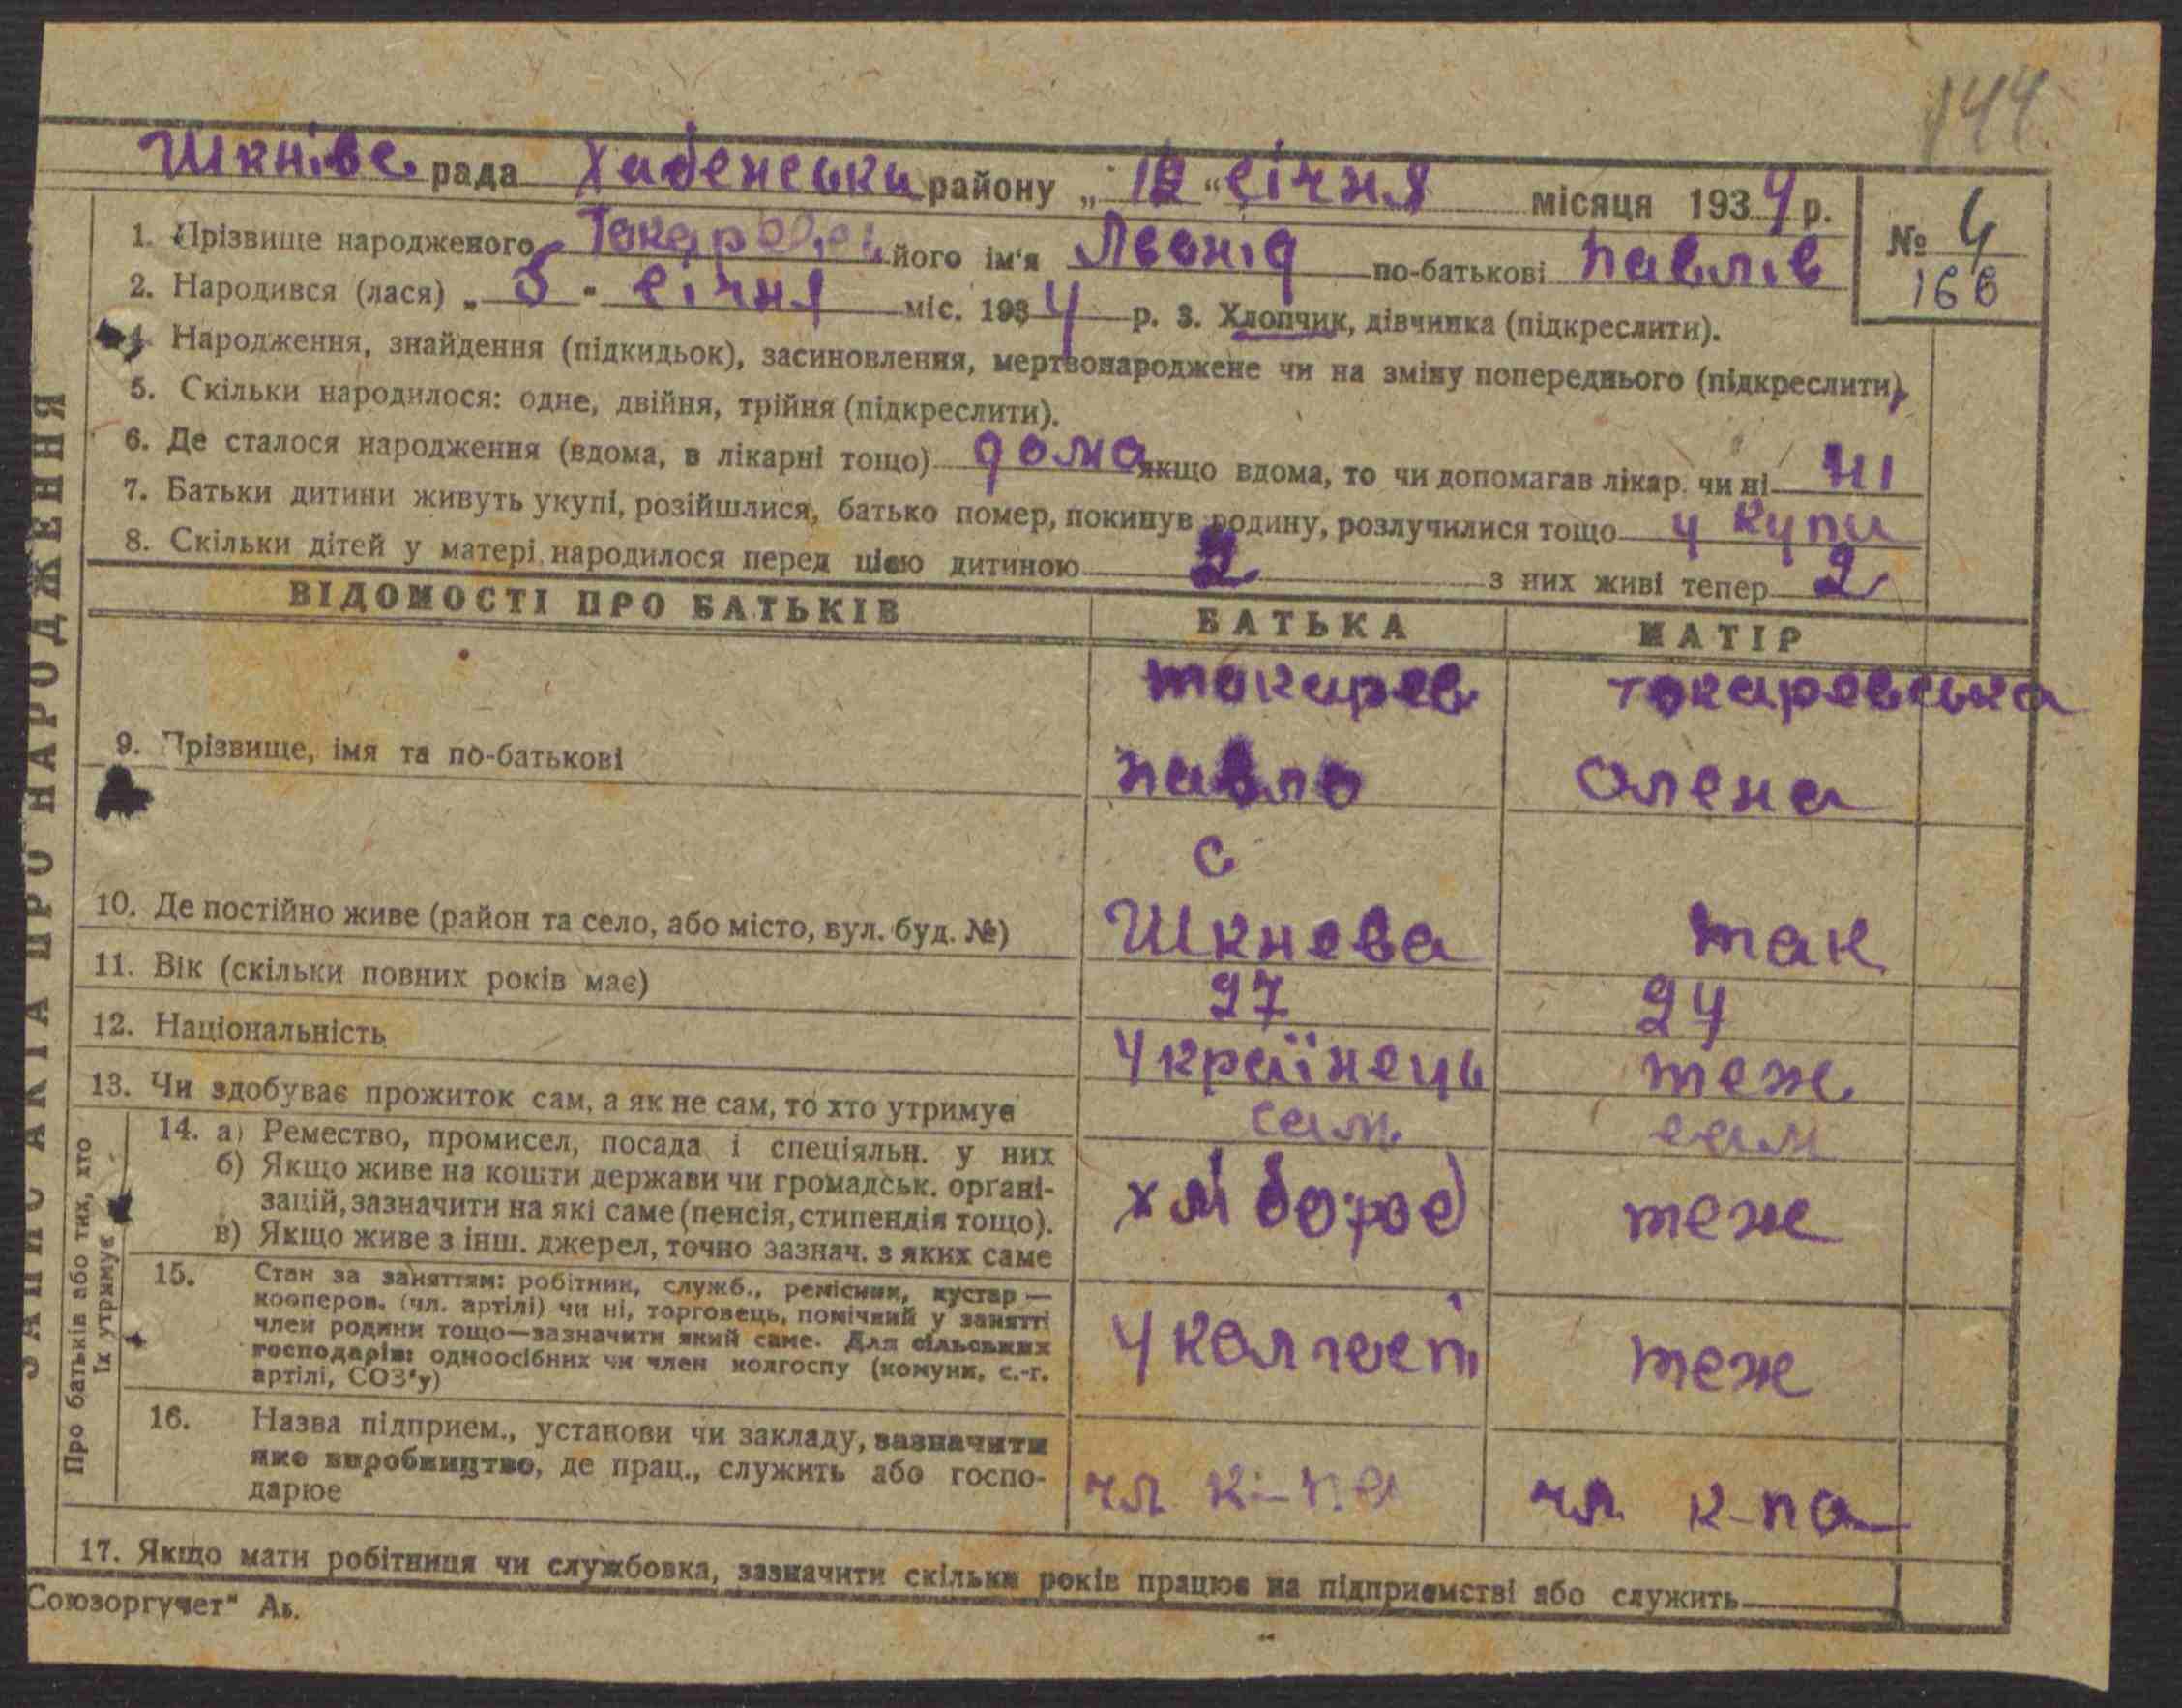 144
Шкнівс. рада Хабенськи району „ 12 “ січня місяця 1934 р.
№ 4
166
1. Прізвище народженого його ім'я Леонід по-батькові Павлів
2. Народився (лася) „ 5 - січня міс. 1934 р. 3. Хлопчик, дівчинка (підкреслити).
4. Народження, знайдення (підкидьок), засиновлення, мертвонароджене чи на зміну попереднього (підкреслити),
5. Скільки народилося: одне, двійня, трійня (підкреслити).
6. Де сталося народження (вдома, в лікарні тощо) дома якщо вдома, то чи допомагав лікар. чи ні ні
7. Батьки дитини живуть укупі, розійшлися, батько помер, покинув родину, розлучилися тощо у купи
8. Скільки дітей у матері народилося перед цією дитиною 2 з них живі тепер 2
ВІДОМОСТІ ПРО БАТЬКІВ БАТЬКА МАТІР
токарев токаревська
9. Прізвище, імя та по-батькові павло Олена
с
10. Де постійно живе (район та село, або місто, вул. буд. №) Шкнева так
11. Вік (скільки повних років має) 27 24
12. Національність Українець теж
13. Чи здобуває прожиток сам, а як не сам, то хто утримує сам сам
14. а) Ремество, промисел, посада і спеціяльн. у них
б) Якщо живе на кошти держави чи громадськ. органі-
зацій, зазначити на які саме (пенсія, стипендія тощо). хлібороб теж
в) Якщо живе з інш. джерел, точно зазнач. з яких саме
15. Стан за заняттям: робітник, служб., ремісник, кустар —
кооперов. (чл. артілі) чи ні, торговець, помічний у занятті
член родини тощо—зазначити який саме. Для сільських
господарів: одноосібних чи член колгоспу (комуни, с.-г. у колгоспі теж
артілі, СОЗ'у)
16. Назва підприєм., установи чи закладу, зазначити
яке виробництво, де прац., служить або госпо-
дарює чл к-па чл к-па
17. Якщо мати робітниця чи службовка, зазначити скільки років працює на підприємстві або служить
Союзоргучет" Аь.
ЗАПИС АКТА ПРО НАРОДЖЕННЯ
Про батьків або тих, хто
їх утримує